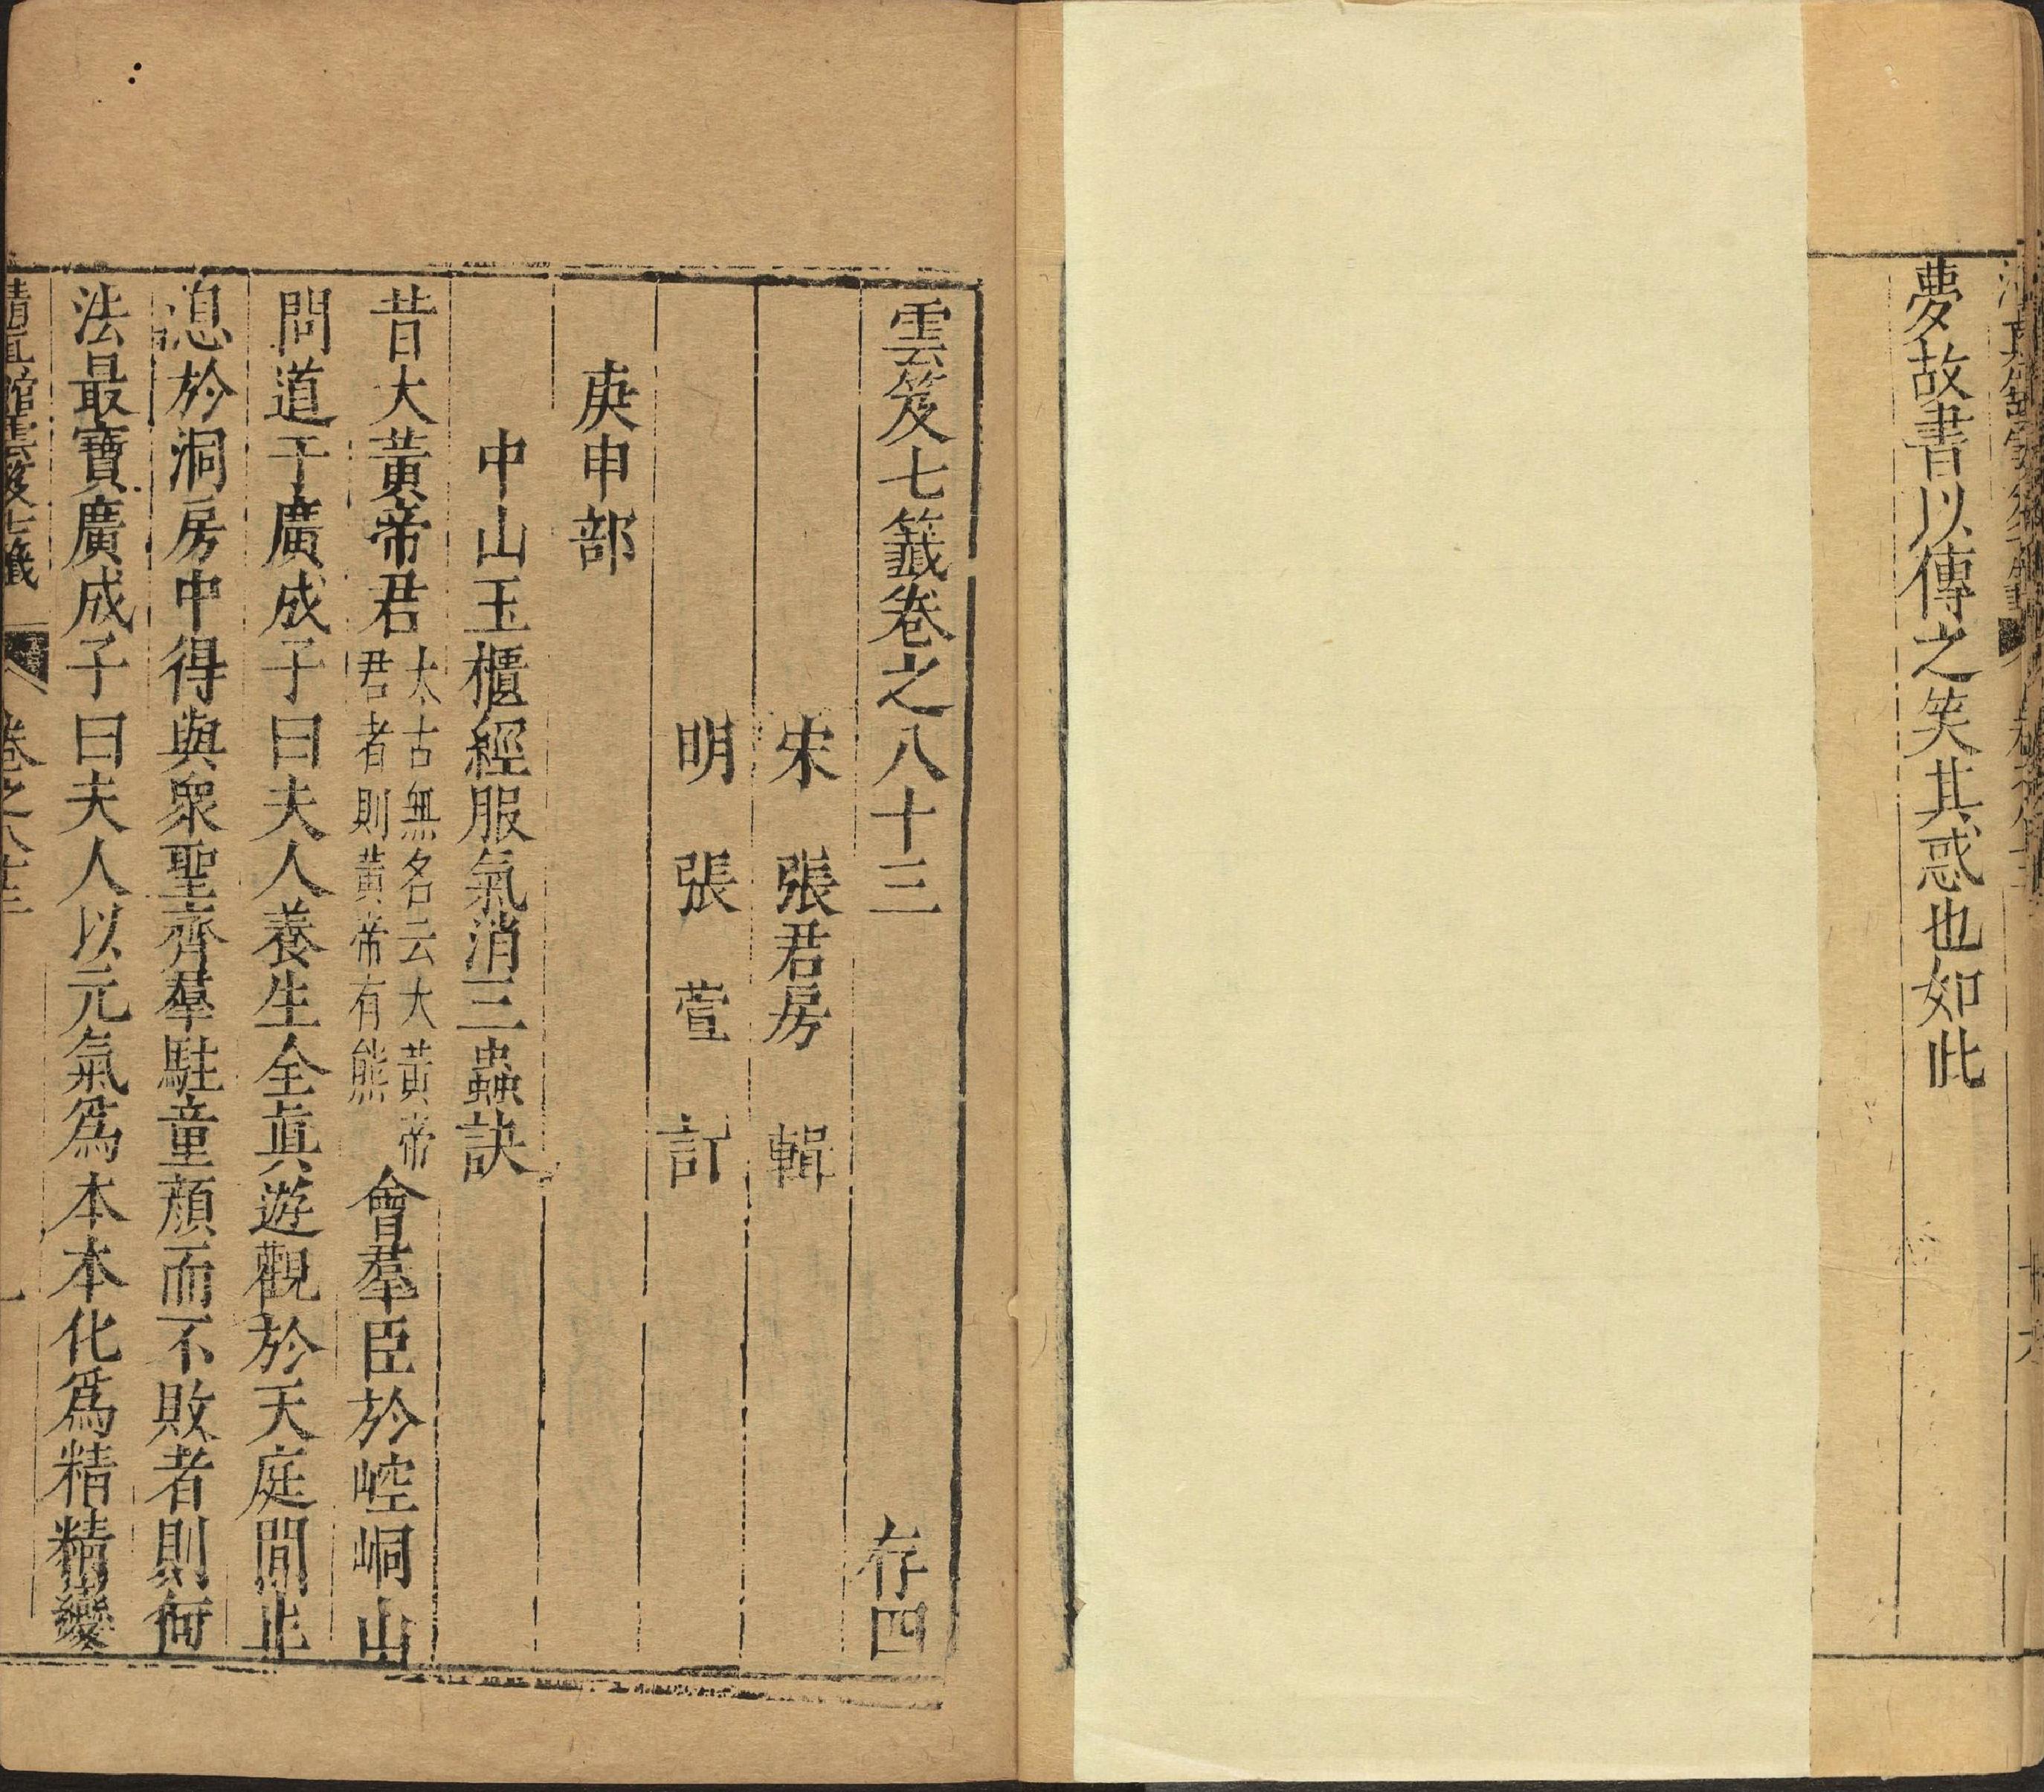 夢故書以傳之笑其惑也如此
雲笈七籤卷之八十三 存四
宋 張君房 輯
明 張萱 訂
庚申部
中山玉櫃經服氣消三蟲訣
昔大黃帝君太古無名云大黃帝君者則黃帝有熊會羣臣於崆峒山
問道于廣成子曰夫人養生全眞遊觀於天庭間止
息於洞房中得與衆聖齊羣駐童顏而不敗者則何
法最寶廣成子曰夫人以元氣爲本本化爲精精變
清眞館雲笈七籤 卷之八十三 一